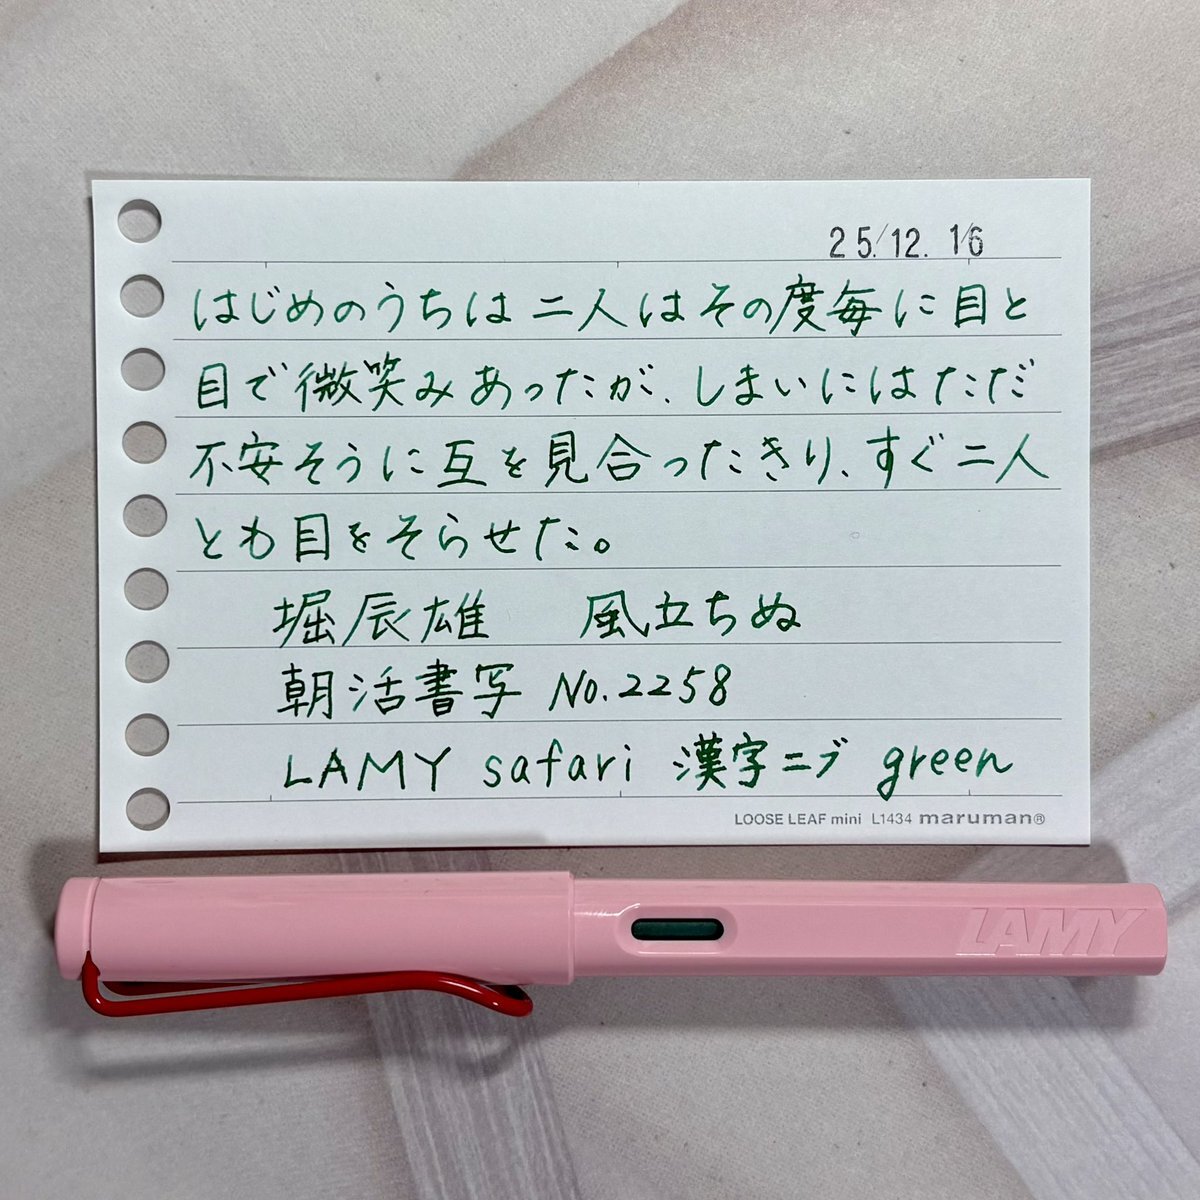 25.12.16
はじめのうちは二人はその度毎に目と
目で微笑みあったが、しまいにはただ
不安そうに互を見合ったきり、すぐ二人
とも目をそらせた。
堀辰雄 風立ちぬ
朝活書写 No.2258
LAMY safari 漢字ニブ green
LOOSE LEAF mini L1434 maruman®
LAMY